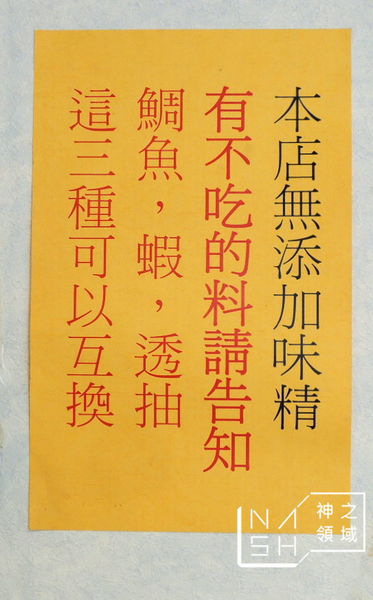 本店無添加味精
有不吃的料請告知
鯛魚，蝦，透抽
這三種可以互換
NASH
神之領域